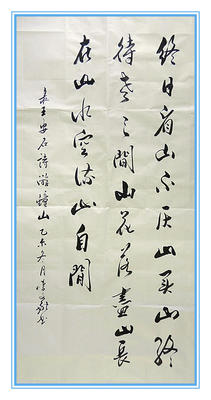 終日看山不厌山買山終
待老之間山花落盡山長
在山水空流山自閒
录王安石詩遊鐘山乙未冬月